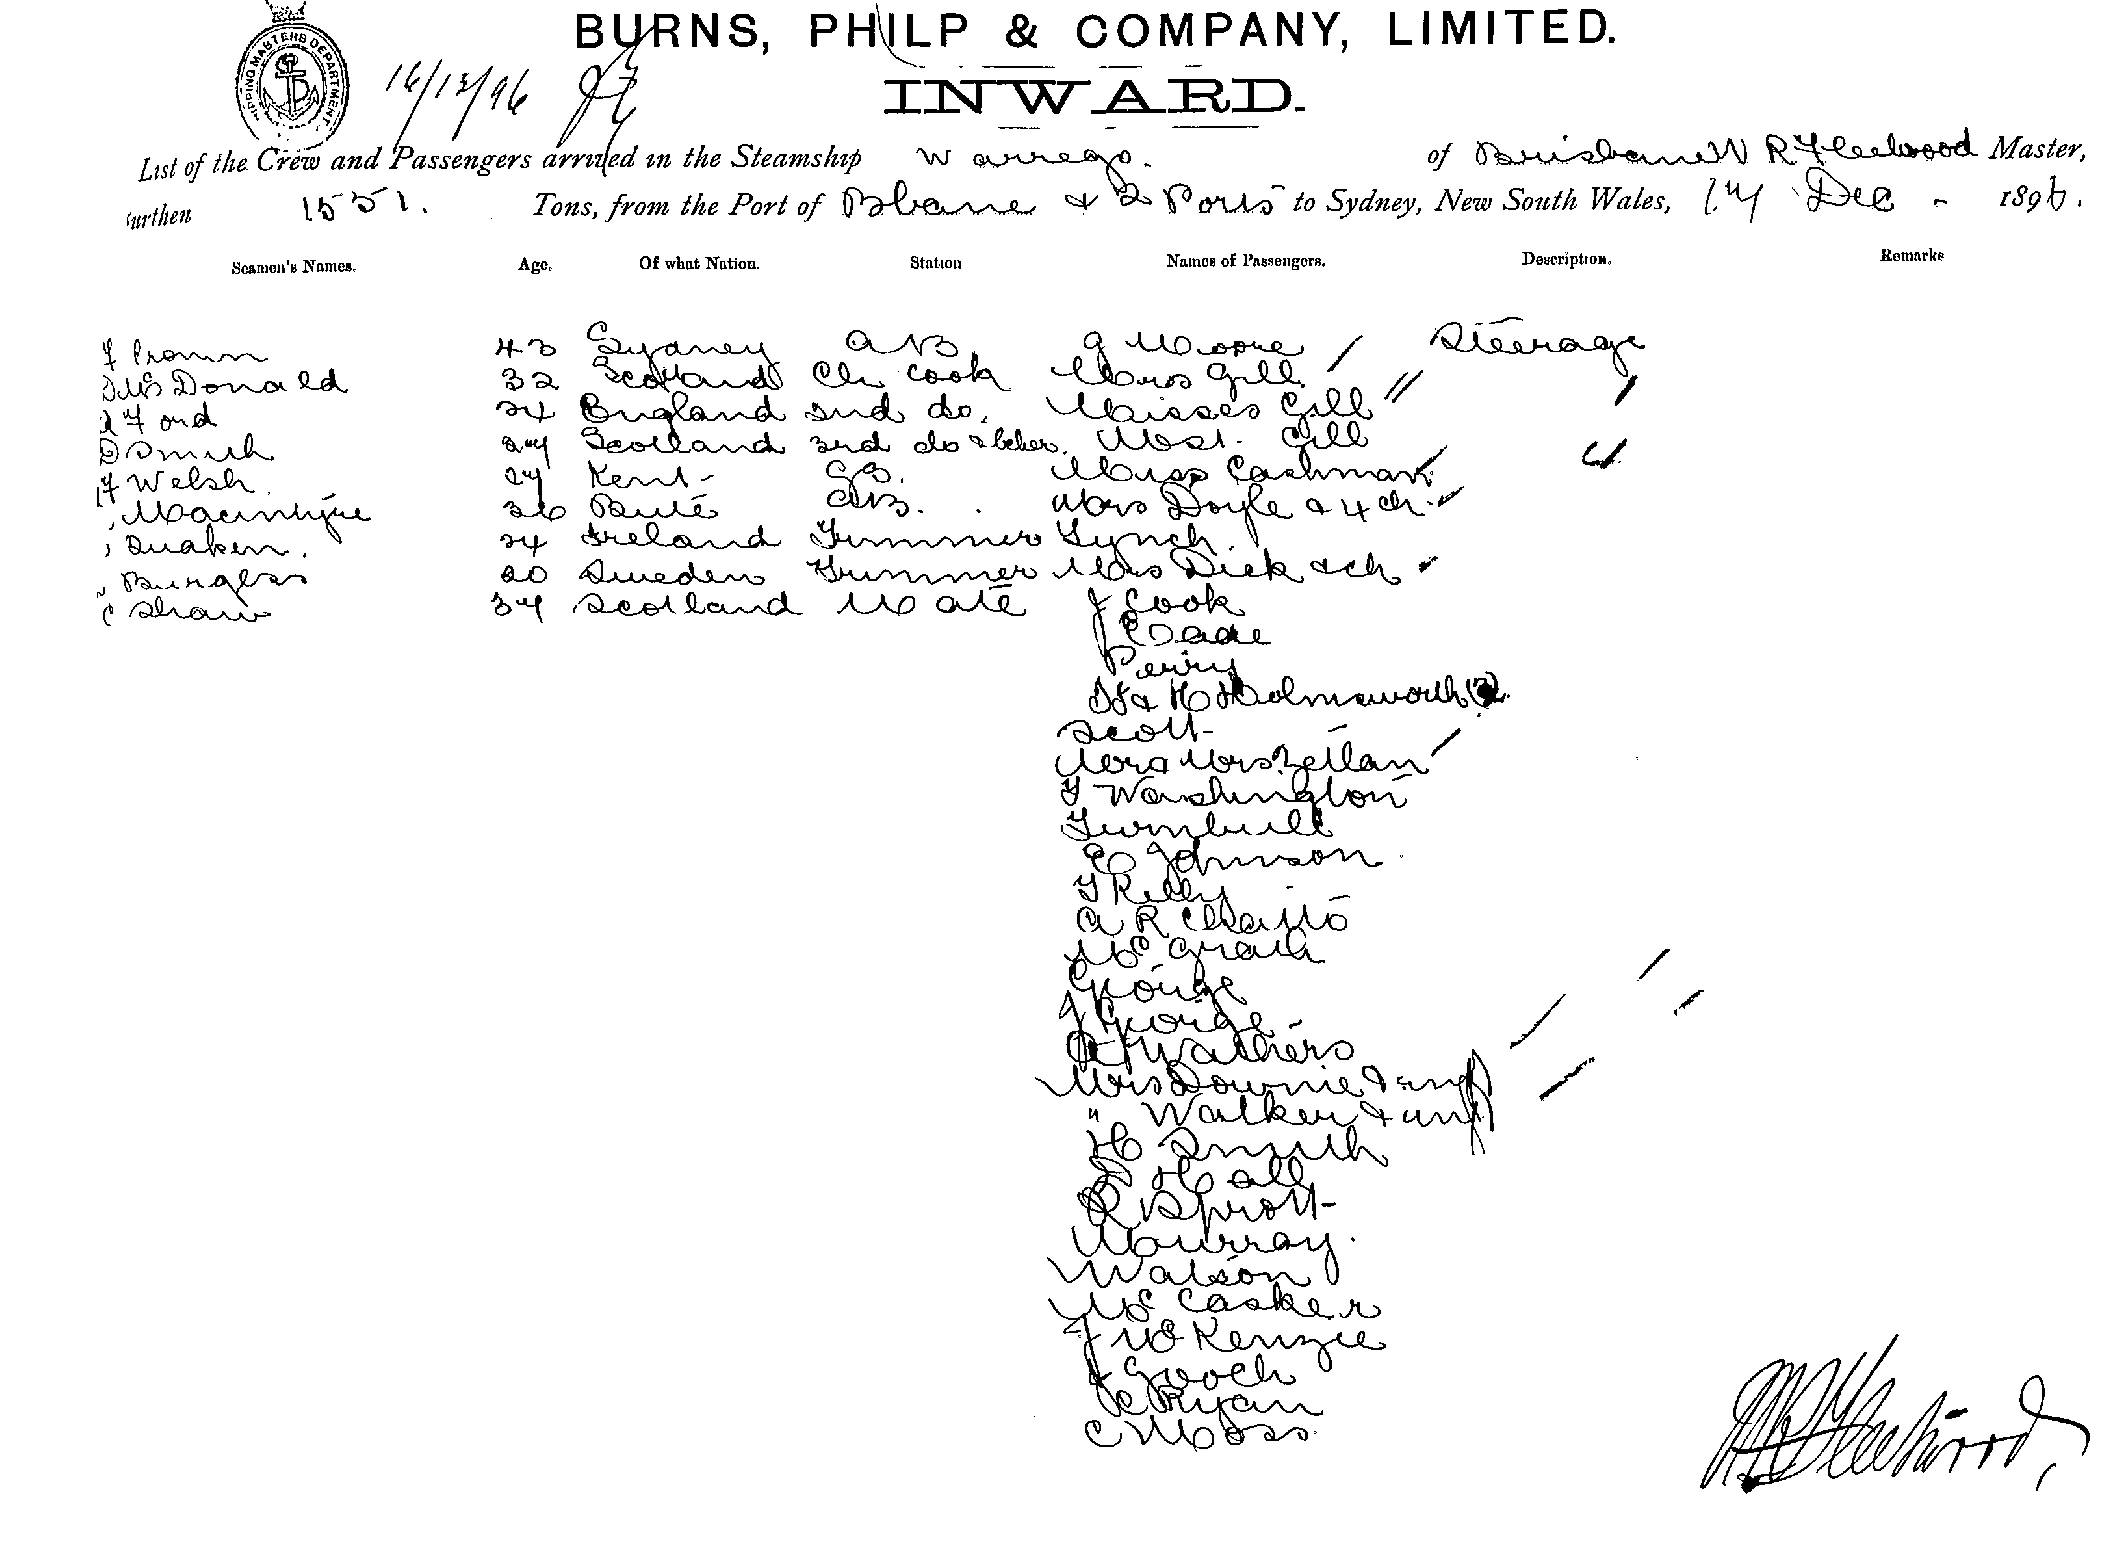 BURNS, PHILP & COMPANY, LIMITED.
SHIPPING MASTERS DEPARTMENT
16/12/96
INWARD.
List of the Crew and Passengers arrived in the Steamship Warrego. of Brisbane W R Fleetwood Master,
urthen 1551. Tons, from the Port of Bbane & 2 Ports to Sydney, New South Wales, 14 Dec - 1896.
Seamen's Names. Age. Of what Nation. Station Names of Passengers. Description. Remarks
43 Sydney AB J Moore Steerage
McDonald 32 Scotland Ch cook Mrs Gill
Ford 24 England 2nd do. Misses Gill
D Smith 24 Scotland 3rd do & btcher. Mast. Gill
Welsh 24 Kent AB. Miss Cashman
Macintyre 36 Bute AB. Mrs Doyle & 4 ch.
24 Ireland Trimmer Lynch
Burgess 20 Sweden Trimmer Mrs Dick & ch
C Shaw 34 Scotland Mate J Cook
Perry
H Holmsworth (2)
Scott
Mr & Mrs
T Washington
Turnbull
E Johnson
T Kelly
A R
McGrath
George
J George
Mrs Downie & inf
" Walker & inf
H Smith
J Hall
R Sprott
Murray.
Watson
McCasker
J McKenzie
J Gooch
Ryan
C Moss
W R Fleetwood,